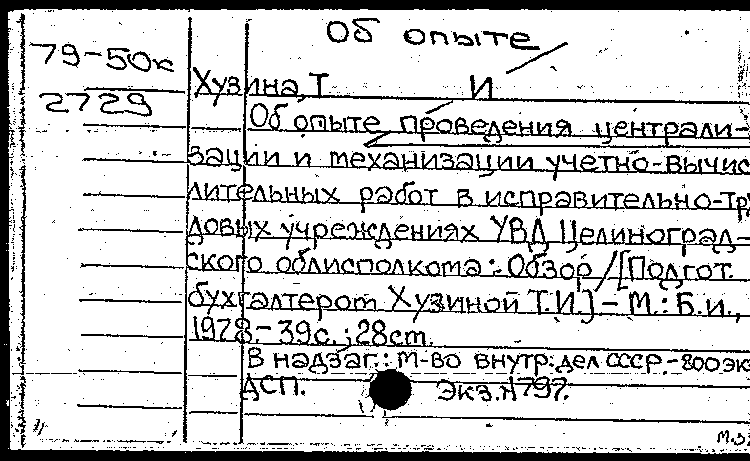 Об опыте
79-50к
2729
Хузина, Т И
Об опыте проведения централи-
зации и механизации учетно-вычис
лительных работ в исправительно-тру
довых учреждениях УВД Целиноград-
ского облисполкома:.Обзор/[Подгот.
бухгалтером Хузиной Т.И.]-М.: Б.и.,
1978.-39с.; 28см.
В надзаг.: М-во внутр. дел СССР.-800эк
ДСП. Экз.№797.